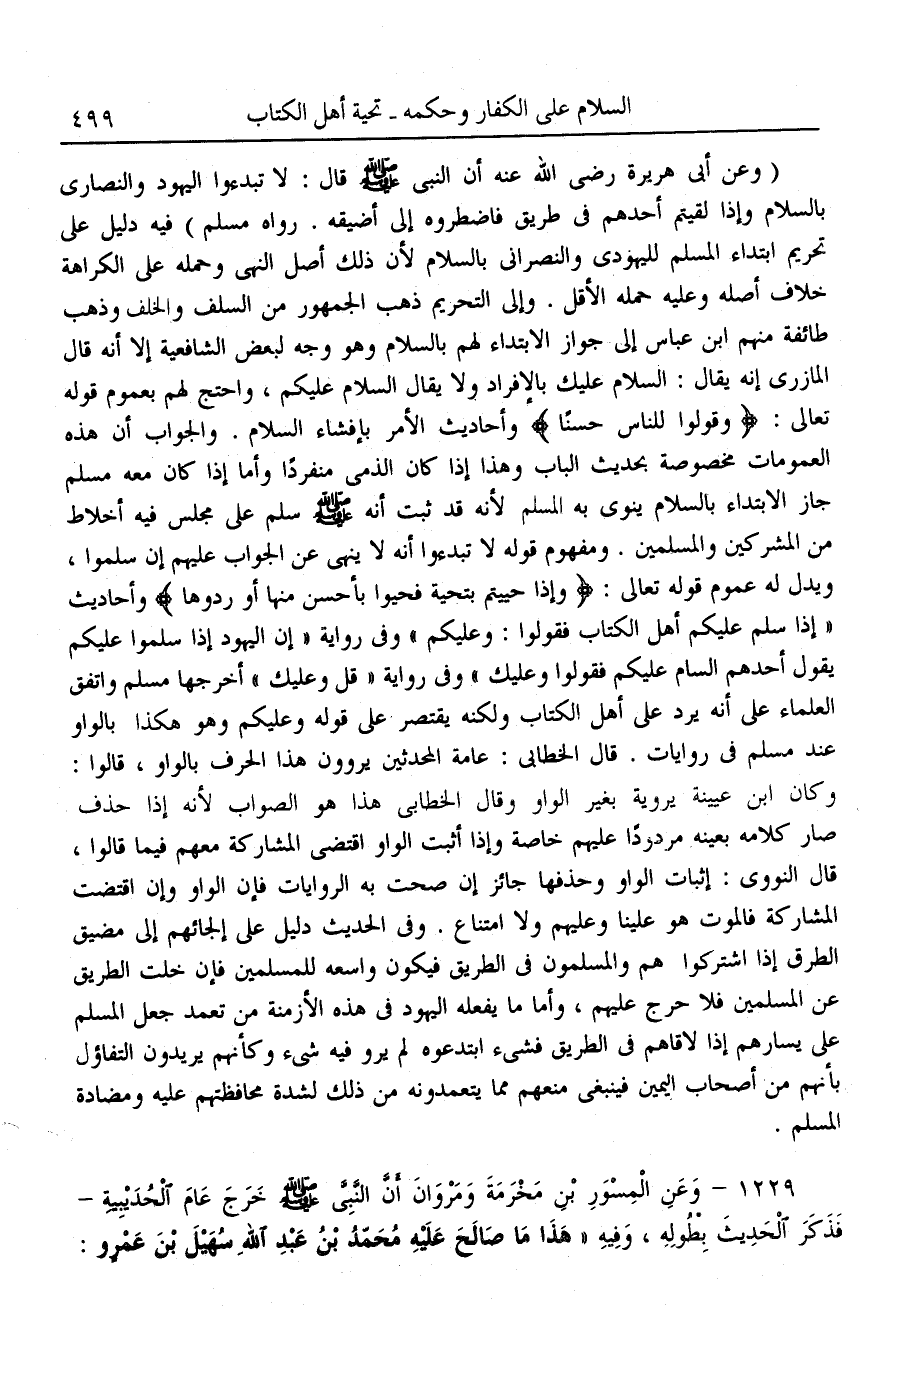 السلام على الكفار وحكمه ـ تحية أهل الكتاب ٤٩٩
( وعن أبى هريرة رضى الله عنه أن النبى ﷺ قال : لا تبدءوا اليهود والنصارى
بالسلام وإذا لقيتم أحدهم فى طريق فاضطروه إلى أضيقه . رواه مسلم ) فيه دليل على
تحريم ابتداء المسلم لليهودى والنصرانى بالسلام لأن ذلك أصل النهى وحمله على الكراهة
خلاف أصله وعليه حمله الأقل . وإلى التحريم ذهب الجمهور من السلف والخلف وذهب
طائفة منهم ابن عباس إلى جواز الابتداء لهم بالسلام وهو وجه لبعض الشافعية إلا أنه قال
المازرى إنه يقال : السلام عليك بالإفراد ولا يقال السلام عليكم ، واحتج لهم بعموم قوله
تعالى : ﴿ وقولوا للناس حسنًا ﴾ وأحاديث الأمر بإفشاء السلام . والجواب أن هذه
العمومات مخصوصة بحديث الباب وهذا إذا كان الذمى منفردًا وأما إذا كان معه مسلم
جاز الابتداء بالسلام ينوى به المسلم لأنه قد ثبت أنه ﷺ سلم على مجلس فيه أخلاط
من المشركين والمسلمين . ومفهوم قوله لا تبدءوا أنه لا ينهى عن الجواب عليهم إن سلموا ،
ويدل له عموم قوله تعالى : ﴿ وإذا حييتم بتحية فحيوا بأحسن منها أو ردوها ﴾ وأحاديث
« إذا سلم عليكم أهل الكتاب فقولوا : وعليكم » وفى رواية « إن اليهود إذا سلموا عليكم
يقول أحدهم السام عليكم فقولوا وعليك » وفى رواية « قل وعليك » أخرجها مسلم واتفق
العلماء على أنه يرد على أهل الكتاب ولكنه يقتصر على قوله وعليكم وهو هكذا بالواو
عند مسلم فى روايات . قال الخطابى : عامة المحدثين يروون هذا الحرف بالواو ، قالوا :
وكان ابن عيينة يروية بغير الواو وقال الخطابى هذا هو الصواب لأنه إذا حذف
صار كلامه بعينه مردودًا عليهم خاصة وإذا أثبت الواو اقتضى المشاركة معهم فيما قالوا ،
قال النووى : إثبات الواو وحذفها جائز إن صحت به الروايات فإن الواو وإن اقتضت
المشاركة فالموت هو علينا وعليهم ولا امتناع . وفى الحديث دليل على إلجائهم إلى مضيق
الطرق إذا اشتركوا هم والمسلمون فى الطريق فيكون واسعه للمسلمين فإن خلت الطريق
عن المسلمين فلا حرج عليهم ، وأما ما يفعله اليهود فى هذه الأزمنة من تعمد جعل المسلم
على يسارهم إذا لاقاهم فى الطريق فشىء ابتدعوه لم يرو فيه شىء وكأنهم يريدون التفاؤل
بأنهم من أصحاب اليمين فينبغى منعهم مما يتعمدونه من ذلك لشدة محافظتهم عليه ومضادة
المسلم .
١٢٢٩ – وَعَنِ الْمِسْوَرِ بْنِ مَخْرَمَةَ وَمَرْوَانَ أَنَّ النَّبِىَّ ﷺ خَرَجَ عَامَ ٱلْحُدَيْبِيةِ –
فَذَكَرَ ٱلْحَدِيثَ بِطُولِهِ ، وَفِيهِ « هَذَا مَا صَالَحَ عَلَيْهِ مُحَمَّدُ بْنُ عَبْدِ ٱللهِ سُهَيْلَ بْنَ عَمْرٍو :